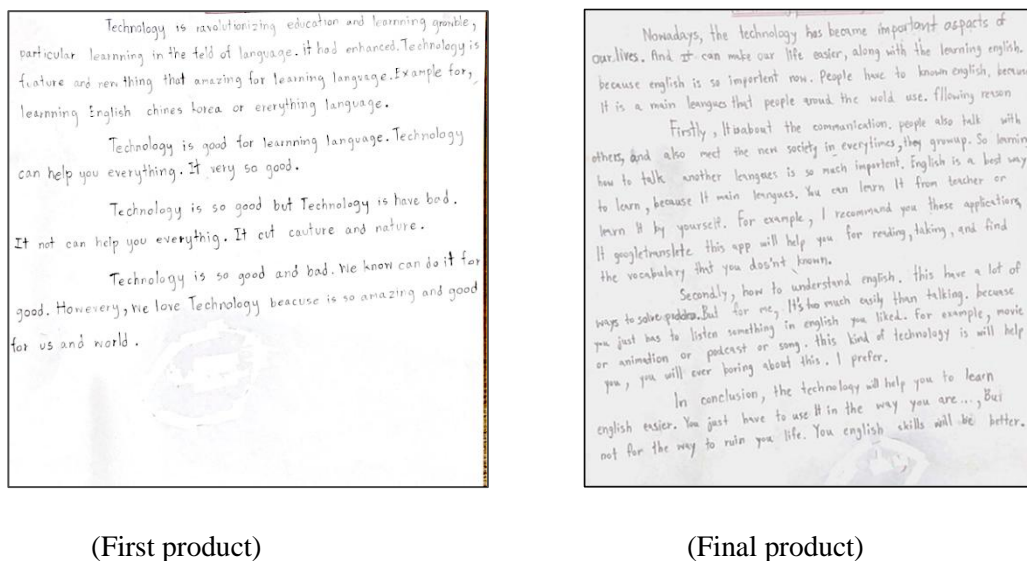 Technology is ravolutionizing education and learnning growble,
particular learnning in the feld of language. it had enhanced. Technology is
fuature and new thing that amazing for learning language. Example for,
learnning English chines korea or everything language.
Technology is good for learnning language. Technology
can help you everything. It very so good.
Technology is so good but Technology is have bad.
It not can help you everythig. It cut cauture and nature.
Technology is so good and bad. We know can do it for
good. Howevery, we love Technology beacuse is so amazing and good
for us and world.
Nowadays, the technology has became important aspacts of
our lives. And It can make our life easier, along with the learning english.
because english is so importent now. People have to known english, because
It is a main leangues that people aroud the wold use. fllowing reason
Firstly, It is about the communication. people also talk with
others, and also meet the new society in everytimes, they growup. So learning
how to talk another leangues is so much importent. English is a best way
to learn, because It main leangues. You can learn It from teacher or
learn It by yourself. For example, I recommand you these applications,
It googletranslete this app will help you for reading, taking, and find
the vocabulary that you dos'nt known.
Secondly, how to understand english. this have a lot of
ways to solve But for me, It's too much easily than talking. becuase
you just has to listen something in english you liked. For example, movie
or animation or podcast or song. this kind of technology is will help
you, you will ever boring about this. I prefer.
In conclusion, the technology will help you to learn
english easier. You just have to use It in the way you are..., But
not for the way to ruin you life. You english skills will be better.
(First product)
(Final product)